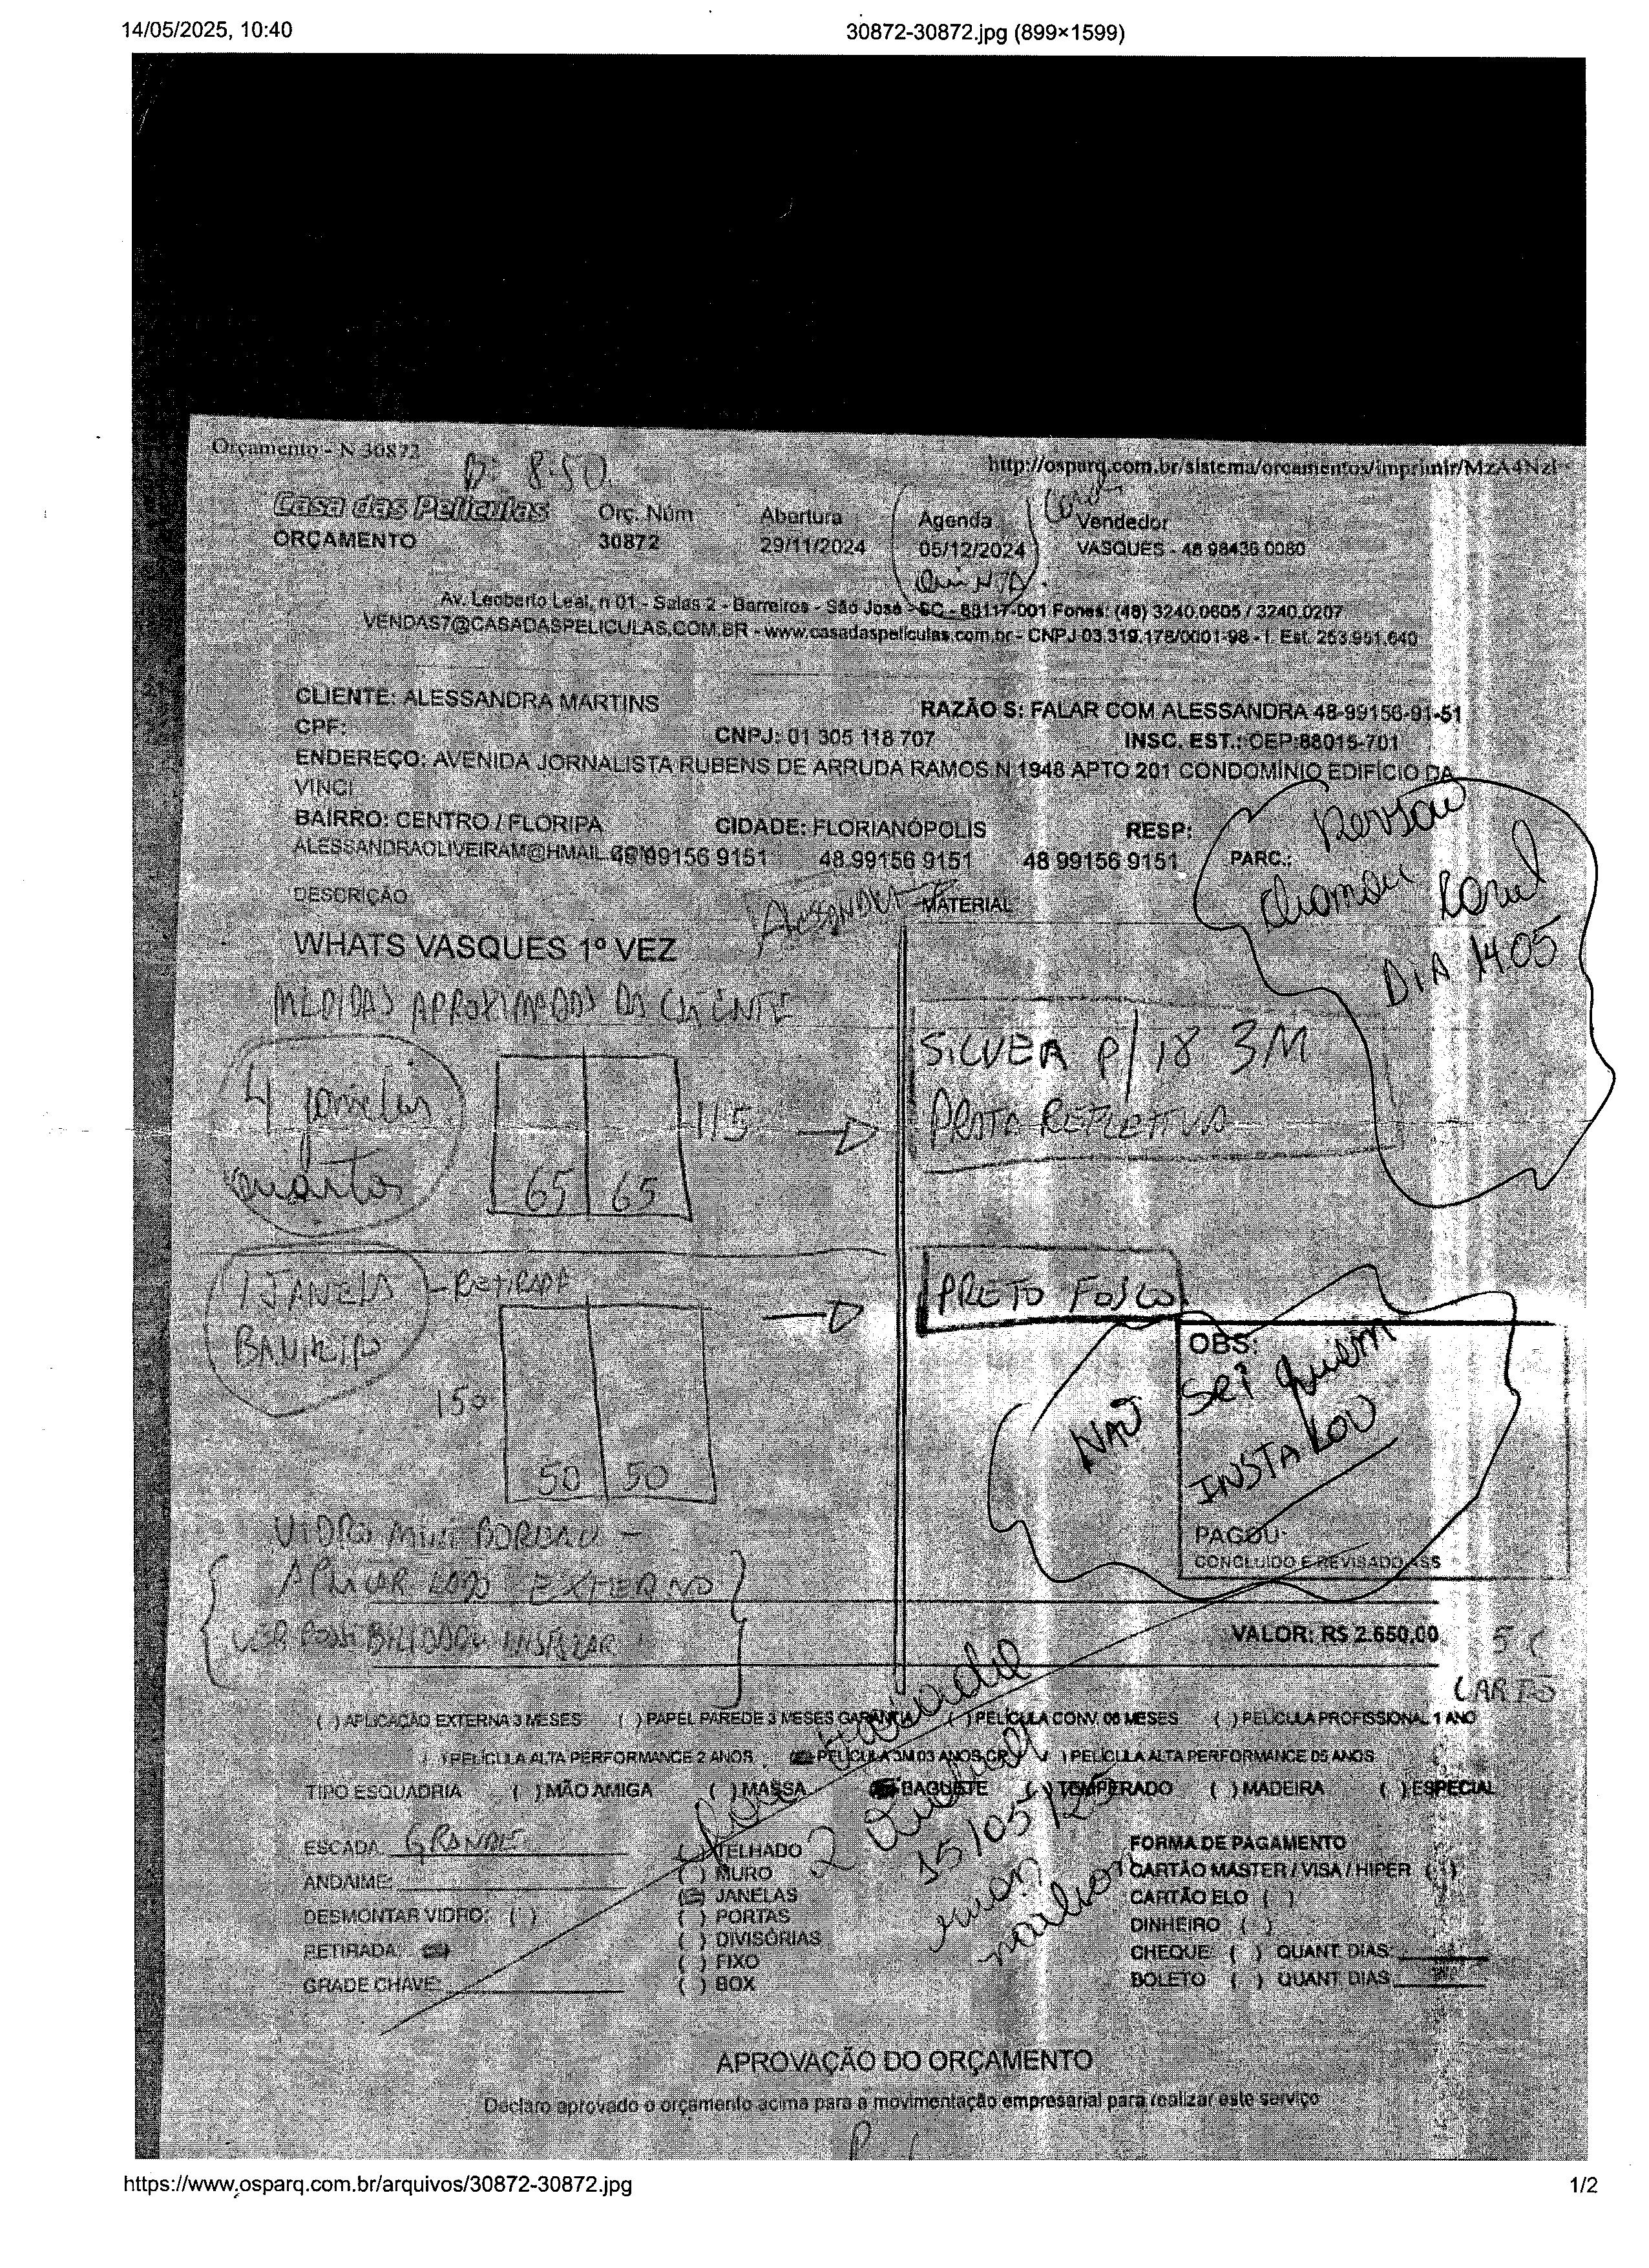 14/05/2025, 10:40
30872-30872.jpg (899×1599)
Orçamento - N 30872
8:50
http://osparq.com.br/sistema/orcamentos/imprimir/MzA4NzI
Casa das Películas
ORÇAMENTO
Orç. Núm
30872
Abertura
29/11/2024
Agenda
05/12/2024
QuiNTA
Vendedor
VASQUES - 48 98436 0080
Av. Leoberto Leal, n 01 - Salas 2 - Barreiros - São José - SC - 88117-001 Fones: (48) 3240.0605 / 3240.0207
VENDAS7@CASADASPELICULAS.COM.BR - www.casadaspeliculas.com.br - CNPJ 03.319.178/0001-98 - I. Est. 253.951.640
CLIENTE: ALESSANDRA MARTINS
RAZÃO S: FALAR COM ALESSANDRA 48-99156-91-51
CPF:
CNPJ: 01 305 118 707
INSC. EST.: CEP:88015-701
ENDEREÇO: AVENIDA JORNALISTA RUBENS DE ARRUDA RAMOS N 1948 APTO 201 CONDOMÍNIO EDIFÍCIO DA
VINCI
BAIRRO: CENTRO / FLORIPA
CIDADE: FLORIANÓPOLIS
RESP:
ALESSANDRAOLIVEIRAM@HMAIL
99156 9151
48 99156 9151
48 99156 9151
PARC.:
chamou
DIA 14.05
DESCRIÇÃO
ALESSANDRA
MATERIAL
WHATS VASQUES 1º VEZ
MEDIDAS APROXIMADAS DA CLIENTE
4 janelas
quartos
115
65 65
SILVER P/18 3M
PRATA REFLETIVA
1 JANELA
BANHEIRO
- RETIRADA
150
50 50
PRETO FOSCO
OBS:
NAÕ sei quem
INSTALOU
PAGOU:
CONCLUIDO E REVISADO ASS
VIDRO MINI BOREAU -
APLICAR LADO EXTERNO
VER POSSIBILIDADE INSTALAR
VALOR: R$ 2.650,00
CARTÃO
( ) APLICAÇÃO EXTERNA 3 MESES ( ) PAPEL PAREDE 3 MESES GARANTIA ( ) PELÍCULA CONV. 06 MESES ( ) PELÍCULA PROFISSIONAL 1 ANO
( ) PELÍCULA ALTA PERFORMANCE 2 ANOS PELÍCULA 3M 03 ANOS CR ( ) PELÍCULA ALTA PERFORMANCE 05 ANOS
TIPO ESQUADRIA ( ) MÃO AMIGA ( ) MASSA BAGUETE ( ) TEMPERADO ( ) MADEIRA ( ) ESPECIAL
ESCADA: GRANDE
ANDAIME:
DESMONTAR VIDRO: ( )
RETIRADA:
GRADE CHAVE:
( ) TELHADO
( ) MURO
JANELAS
( ) PORTAS
( ) DIVISÓRIAS
( ) FIXO
( ) BOX
15/05/25
FORMA DE PAGAMENTO
CARTÃO MASTER / VISA / HIPER ( )
CARTÃO ELO ( )
DINHEIRO ( )
CHEQUE ( ) QUANT DIAS:
BOLETO ( ) QUANT DIAS
APROVAÇÃO DO ORÇAMENTO
Declaro aprovado o orçamento acima para a movimentação empresarial para realizar este serviço
https://www.osparq.com.br/arquivos/30872-30872.jpg
1/2